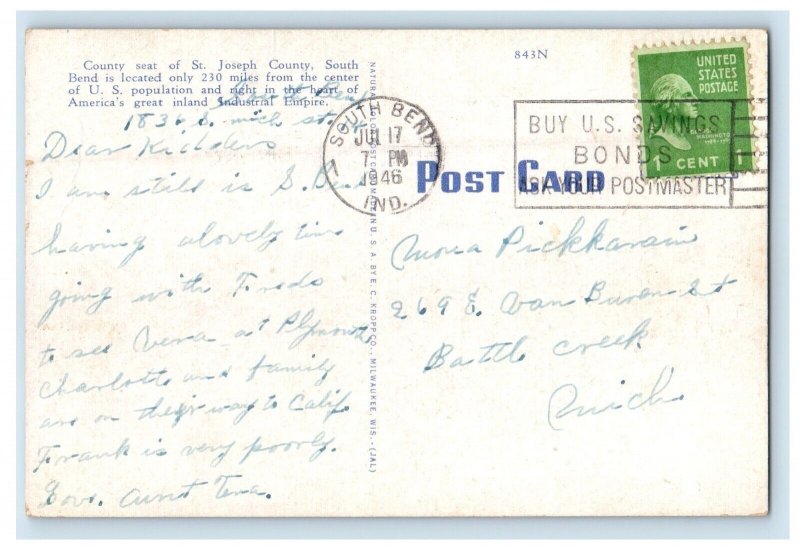 County seat of St. Joseph County, South
Bend is located only 230 miles from the center
of U. S. population and right in the heart of
America's great inland Industrial Empire.
843N
UNITED
STATES
POSTAGE
1 CENT
SOUTH BEND
JUL 17
7 PM
1946
IND.
BUY U.S. SAVINGS
BONDS
ASK YOUR POSTMASTER
POST CARD
NATURAL COLOR POST CARD MADE IN U. S. A. BY E. C. KROPP CO., MILWAUKEE, WIS. - (JAL)
South Bend
1836 S. Mich St.
Dear Kidders
I am still in S. Bend
having a lovely time
going with
to see Vera at Plymouth
Charlotte and family
are on their way to Calif.
Frank is very poorly.
Love. Aunt Tena.
Mona
269 E. Van Buren St
Battle Creek
Mich.